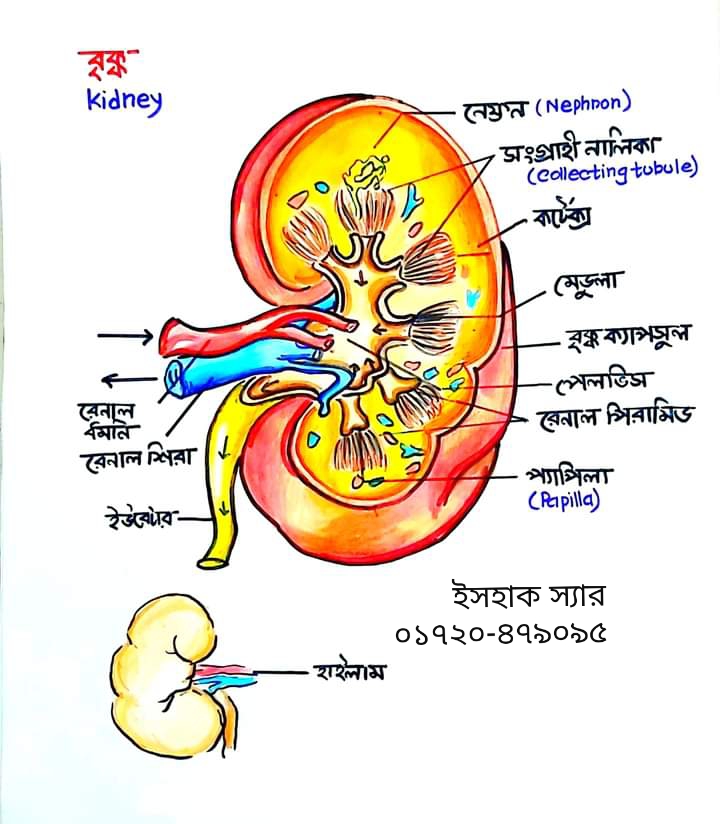 বৃক্ক
Kidney
নেফ্রন (Nephron)
সংগ্রাহী নালিকা
(Collecting tubule)
কর্টেক্স
মেডুলা
বৃক্ক ক্যাপসুল
পেলভিস
রেনাল পিরামিড
প্যাপিলা
(Papilla)
রেনাল
ধমনি
রেনাল শিরা
ইউরেটার
ইসহাক স্যার
০১৭২০-৪৭৯০৯৫
হাইলাম